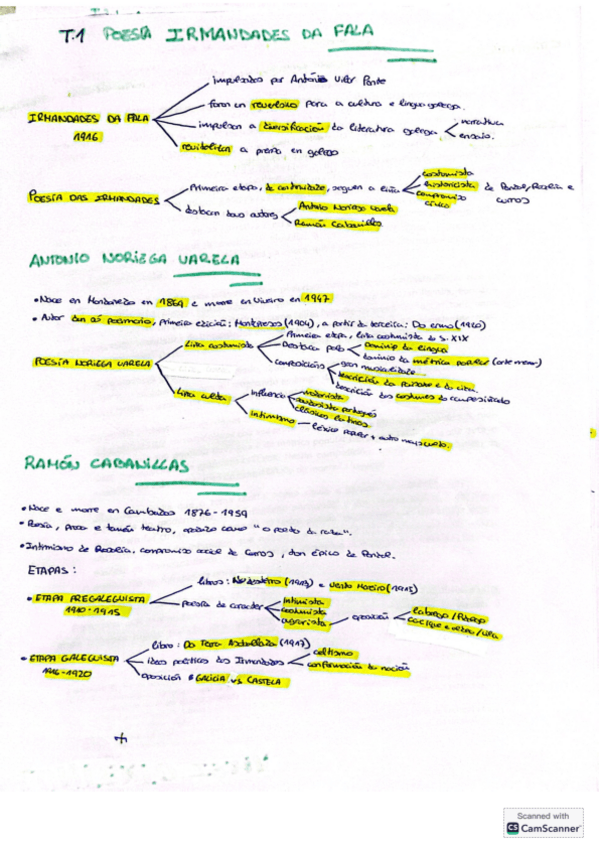 T.1 POESÍA IRMANDADES DA FALA
impulsadas por Antón Villar Ponte
IRMANDADES DA FALA 1916
foron un revulsivo para a cultura e lingua galega.
impulsan a diversificación da literatura galega
narrativa
ensaio.
revitalizan a prensa en galego
POESÍA DAS IRMANDADES
Primeira etapa, de continuidade, seguen a liña
costumista
historicista
compromiso cívico
de Pondal, Rosalía e Curros
destacan dous autores
Antonio Noriega Varela
Ramón Cabanillas
ANTONIO NORIEGA VARELA
• Nace en Mondoñedo en 1869 e morre en Viveiro en 1947
• Autor dun só poemario, Primeira edición: Montañesas (1904), a partir da terceira: Do ermo (1920)
POESÍA NORIEGA VARELA
Liña costumista
Primeira etapa, liña costumista do S. XIX
Destaca polo
dominio da lingua
dominio da métrica popular (arte menor)
composicións
gran musicalidade
descrición da paisaxe e da vida
descrición dos costumes do campesiñado
Liña culta
Influencia
modernista
saudosista portugués
clásicos latinos
Intimismo
léxico popular + autor mais culto.
RAMÓN CABANILLAS
• Nace e morre en Cambados 1876-1959
• Poesía, prosa e tamén teatro, coñecido como "o poeta da raza".
• Intimismo de Rosalía, compromiso social de Curros, don épico de Pondal.
ETAPAS:
• ETAPA PREGALEGUISTA 1910-1915
libros: No desterro (1913) e Vento Mareiro (1915)
poesía de carácter
intimista
costumista
agrarista
oposición
labrego / Pobo
cacique e vila
• ETAPA GALEGUISTA 1916-1920
libro: Da Terra Asoballada (1917)
idea política das Irmandades
celtismo
conformación da nación
oposición GALICIA vs CASTELA
Scanned with
CS CamScanner